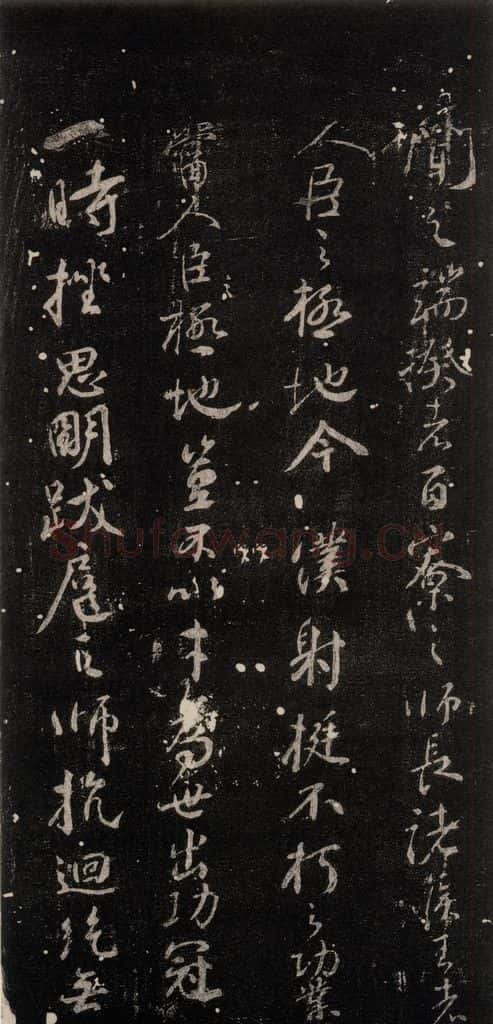 竊聞之端揆者百寮之師長諸侯王者
人臣之極地今僕射挺不朽之功業
當人臣之極地豈不以才為世出功冠
一時挫思明跋扈之師抗迴紇無
Shufawang.CN